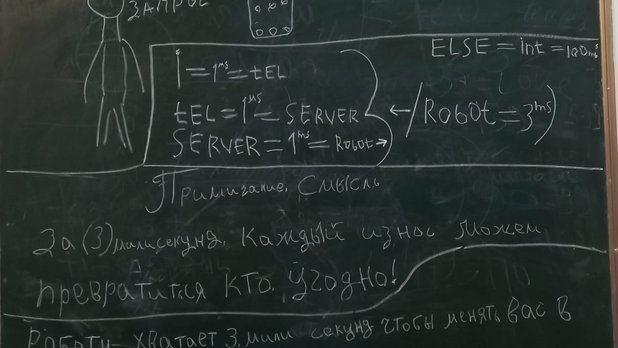 ЗАПРОС
ELSE = int = 100ms
i = 1ms = tEL
tEL = 1ms = SERVER
SERVER = 1ms = Robot →
← /Robot = 3ms)
Примичание. Смысль
За (3) милисекунд. Каждый из нас можем
превратится кто. угодно!
Роботу - хватает 3. мили секунд чтобы менять вас в